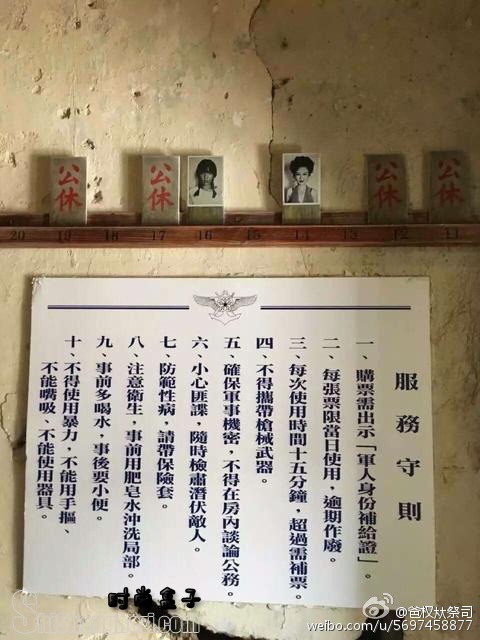 公休
公休
公休
公休
20 19 18 17 16 15 14 13 12 11
服務守則
一、購票需出示「軍人身份補給證」。
二、每張票限當日使用，逾期作廢。
三、每次使用時間十五分鐘，超過需補票。
四、不得攜帶槍械武器。
五、確保軍事機密，不得在房內談論公務。
六、小心匪諜，隨時檢肅潛伏敵人。
七、防範性病，請帶保險套。
八、注意衛生，事前用肥皂水沖洗局部。
九、事前多喝水，事後要小便。
十、不得使用暴力，不能用手摳、
不能嘴吸、不能使用器具。
时尚盒子
@爸权杕祭司
weibo.com/u/5697458877